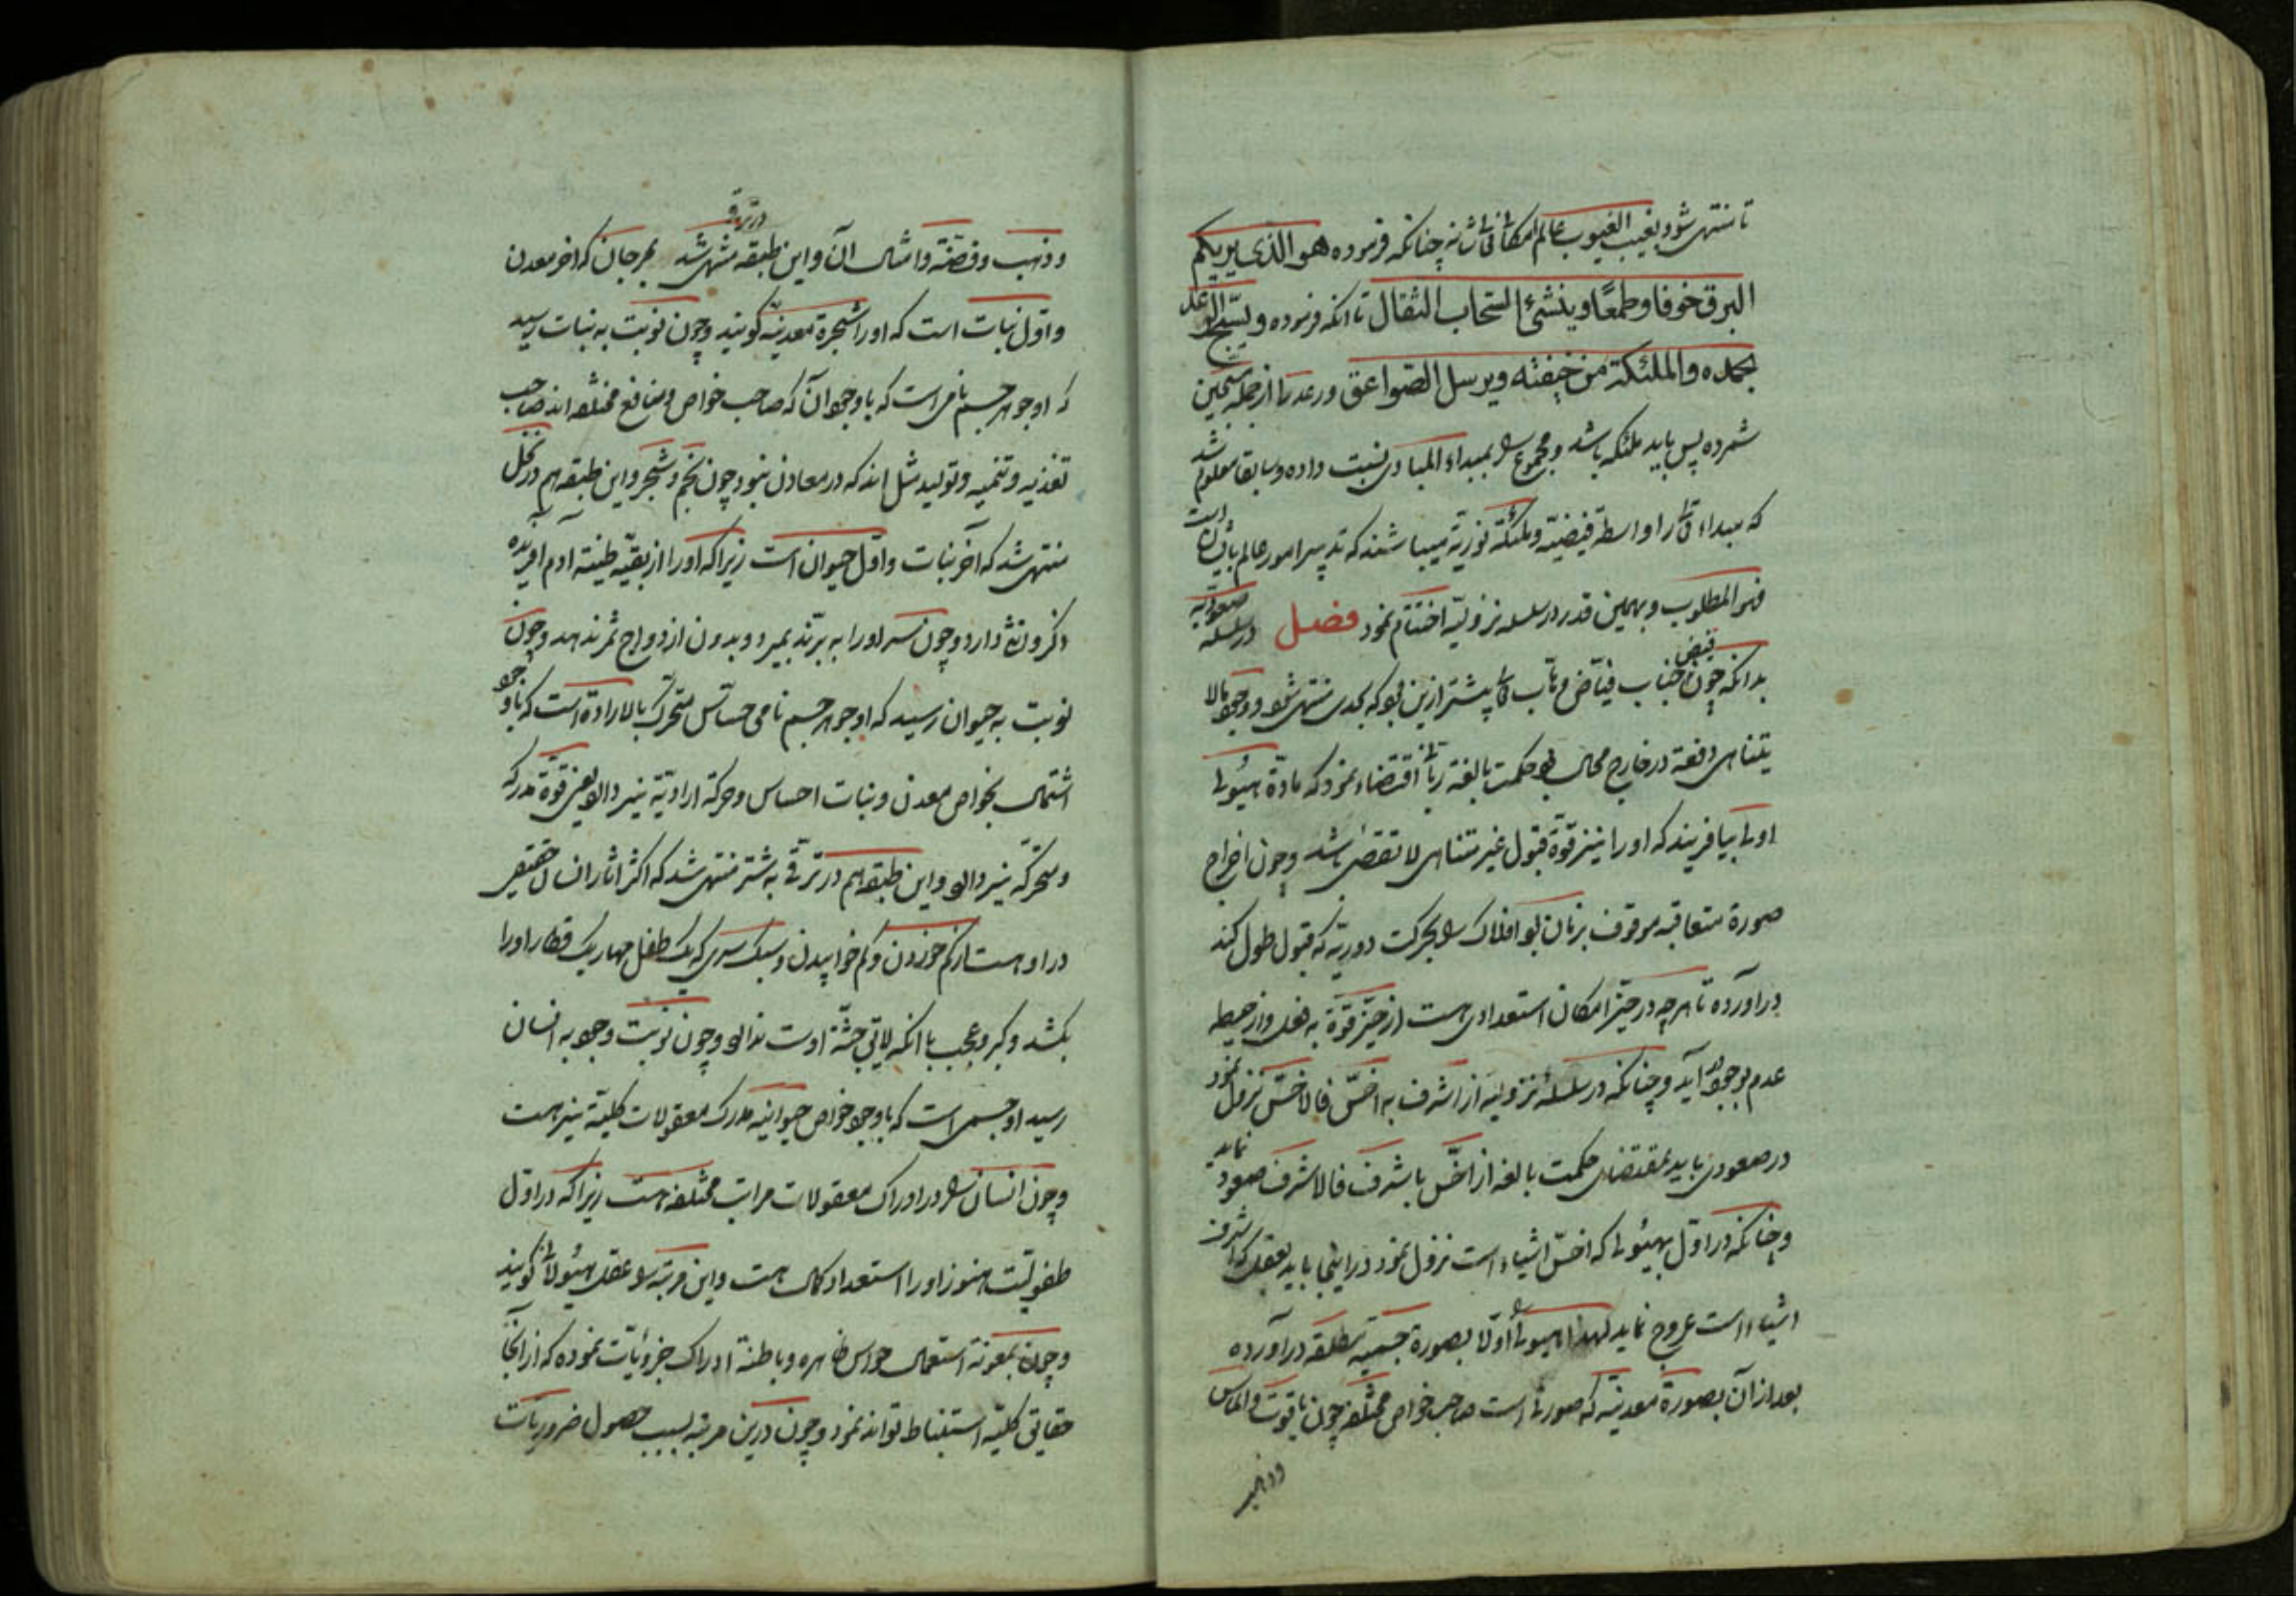 تا منتهی شود بغیب الغیوب عالم امکان تعالی شانه چنانکه فرموده هو الذی یریکم
البرق خوفا وطمعًا وینشئ السّحاب الثقال تا انکه فرموده ویسبّح الرعد
بحمده والملئکة من خیفته ویرسل الصّواعق ورعد را از جمله مسبّحین
شمرده پس باید ملئکه باشد ومجموع را بمبداء المبادی نسبت داده وسابقا معلوم شد
که مبداء تعالی را واسطهٔ فیضیّه وملئکهٔ نوریّه میباشند که تدبیر امور عالم باایشان است
فهو المطلوب وبهمین قدر در سلسله نزولیّه اختتام نمود فصل در سلسله صعودیّه
بدانکه چون فیض جناب فیّاض وهّاب تعالی پیشتر ازین بود که بحدی منتهی شود ووجود مالا
یتناهی دفعة در خارج محال بود حکمت بالغهٔ ربّانی اقتضاء نمود که مادّهٔ هیولی
اولی بیافریند که اورا نیز قوّهٔ قبول غیر متناهی لا تقضی باشد وچون اخراج
صورة متعاقبه موقوف بزمان بود افلاک را بحرکت دوریّه که قبول طول کند
درآورده تا هرچه در حیّز امکان استعدادی هست از حیّز قوّة به فعل واز حیطه
عدم بوجود آید وچنانکه در سلسله نزولیه از اشرف به اخسّ فالاخسّ نزول نمود
در صعودی باید بمقتضای حکمت بالغه از اخسّ باشرف فالاشرف صعود نماید
وچنانکه در اوّل بهیولی که اخسّ اشیاء است نزول نمود در اینجا باید بعقل که اشرف
اشیاء است عروج نماید لهذا هیولی را اوّلا بصورة جسمیّه مطلقه درآورده
بعد از آن بصورة معدنیّه که صورتی است صاحب خواص مختلفه چون یاقوت والماس
وذهب
وذهب وفضّة وامثال آن واین طبقه در ترقی منتهی شد بمرجان که اخر معدن
واوّل نبات است که اورا شجرهٔ معدنیّه گویند وچون نوبت به نبات رسید
که او جوهر جسم نامی است که باوجود آن که صاحب خواص ومنافع مختلفه اند صاحب
تغذیه وتنمیه وتولید مثل اند که در معادن نبود چون نجم وشجر واین طبقه هم در نخل
منتهی شد که آخر نبات واوّل حیوان است زیرا که اورا از بقیّه طینة آدم آفریده
ذکر وانثی دارد وچون سر اورا به برّند بمیرد وبدون ازدواج ثمر ندهد وچون
نوبت به حیوان رسید که او جوهر جسم نامی حسّاس متحرّک بالاراده است که باوجود
اشتمال بخواص معدن ونبات احساس وحرکة ارادیّة نیز دارد یعنی قوّة مدرکه
ومحرکّه نیز دارد واین طبقه هم در ترقّی به شتر منتهی شد که اکثر اثار انسان حقیقی
در او هست از کم خوردن وکم خوابیدن وسبک سری که یک طفل مهار یک قطار اورا
بکشد وکبر وعجب با انکه لایق جثّه اوست ندارد وچون نوبت وجود به انسان
رسید او جسمی است که باوجود خواص حیوانیه مدرک معقولات کلیّة نیز هست
وچون انسان را در ادراک معقولات مراتب مختلفه هست زیرا که در اوّل
طفولیّت هنوز اورا استعداد کمال هست واین مرتبه را عقل هیولانی گویند
وچون بمعونة استعمال حواس ظاهره وباطنة ادراک جزویّات نموده که از انجا
حقایق کلیّه استنباط تواند نمود وچون درین مرتبه بسبب حصول ضروریّات